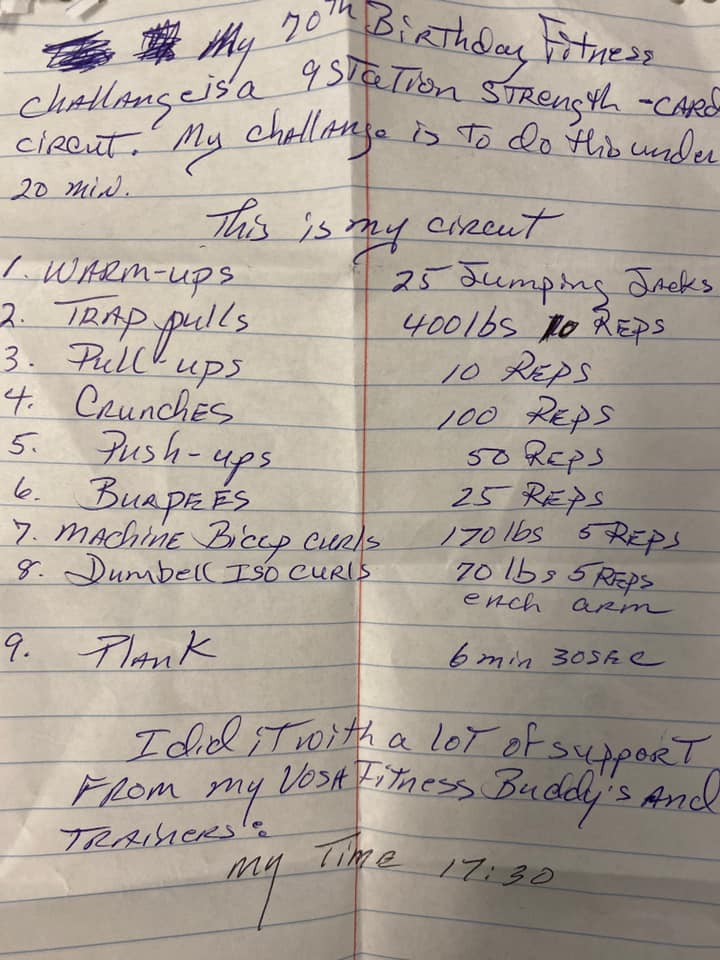 My 70th Birthday Fitness
challange is a 9 STaTion STRength - CARD
circut. My challange is To do this under
20 min.
This is my circut
1. WARM-ups 25 Jumping Jacks
2. TRAP pulls 400 lbs 10 REPS
3. Pull-ups 10 REPS
4. CRunchES 100 REPS
5. Push-ups 50 REPS
6. BURPEES 25 REPS
7. MAchiNE Bicep curls 170 lbs 5 REPS
8. Dumbell ISO CURLS 70 lbs 5 REPS
each arm
9. Plank 6 min 30 SEC
I did iT with a loT of suppoRT
FRom my VOSH FiTness Buddy's And
TRAiNERS's
my Time 17:30